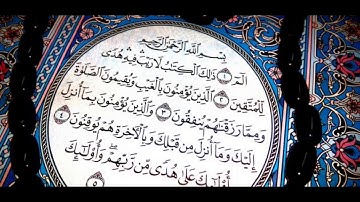 بِسْمِ اللَّهِ الرَّحْمَٰنِ الرَّحِيمِ
الٓمٓ ١ ذَٰلِكَ الْكِتَابُ لَا رَيْبَ فِيهِ هُدًى
لِّلْمُتَّقِينَ ٢ الَّذِينَ يُؤْمِنُونَ بِالْغَيْبِ وَيُقِيمُونَ الصَّلَوٰةَ
وَمِمَّا رَزَقْنَاهُمْ يُنفِقُونَ ٣ وَالَّذِينَ يُؤْمِنُونَ بِمَا أُنزِلَ
إِلَيْكَ وَمَا أُنزِلَ مِن قَبْلِكَ وَبِالْآخِرَةِ هُمْ يُوقِنُونَ ٤
أُولَٰئِكَ عَلَىٰ هُدًى مِّن رَّبِّهِمْ وَأُولَٰئِكَ
٥